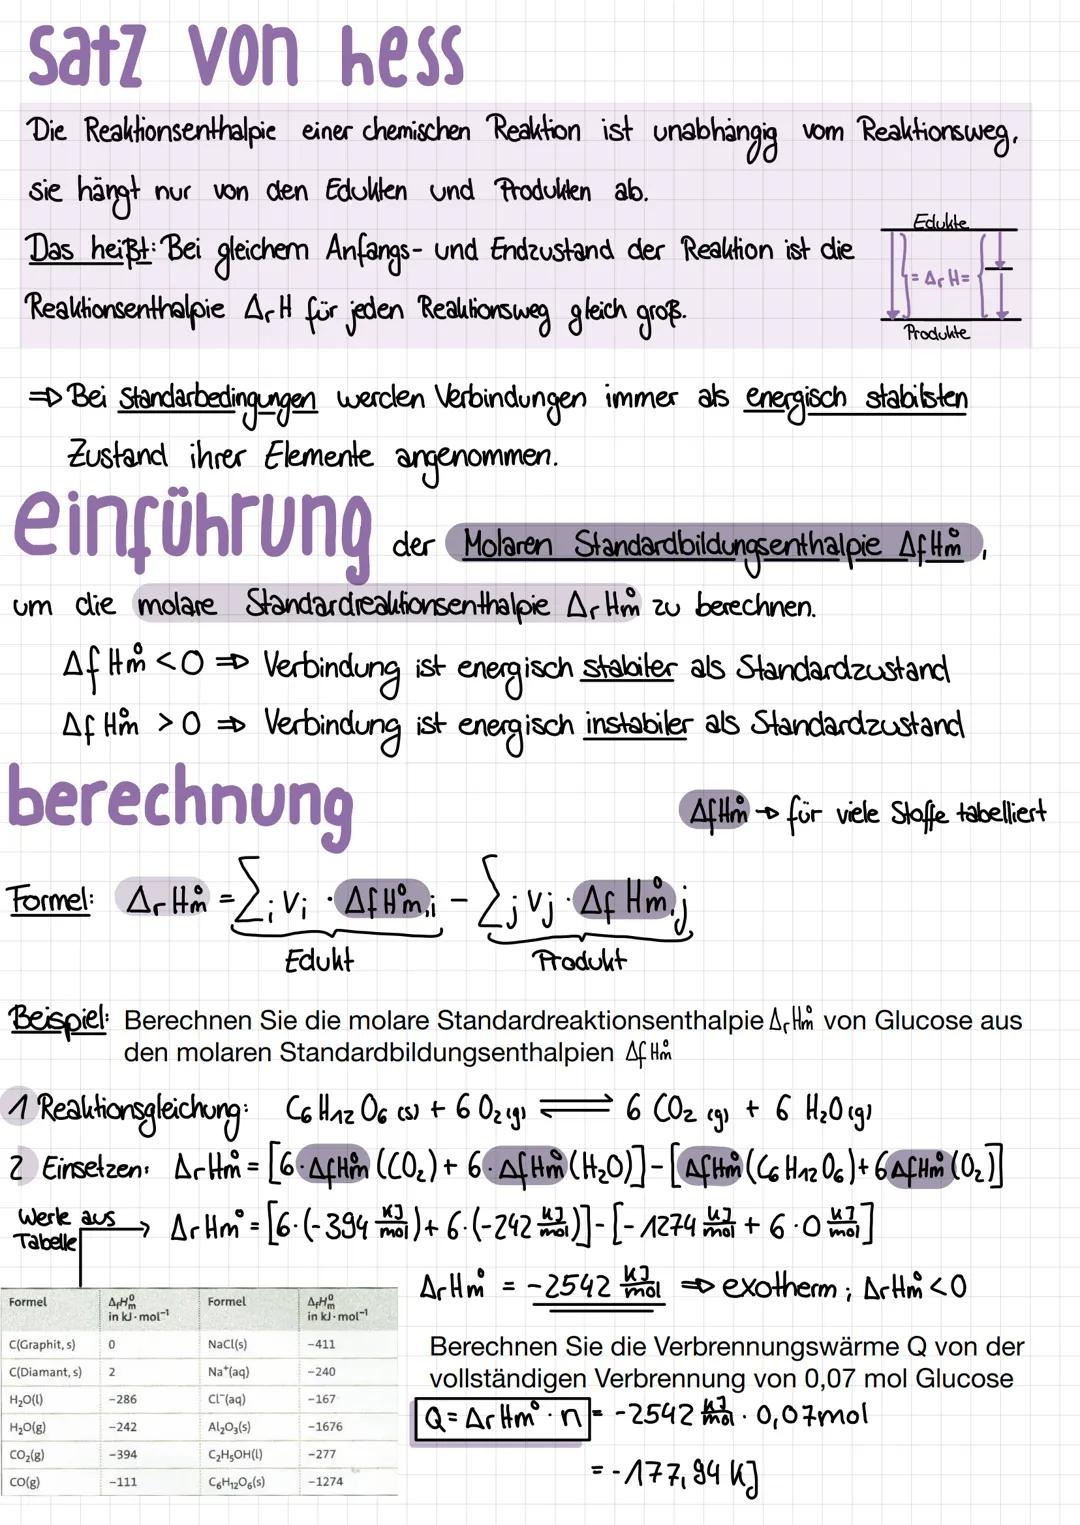 satz von hess
Die Reaktionsenthalpie einer chemischen Reaktion ist unabhängig vom Reaktionsweg,
sie hängt nur von den Edukten und Produkten ab.
Das heißt: Bei gleichem Anfangs- und Endzustand der Reaktion ist die
Reaktionsenthalpie ΔrH für jeden Reaktionsweg gleich groß.
Edukte
= ΔrH =
Produkte
⇒ Bei Standarbedingungen werden Verbindungen immer als energisch stabilsten
Zustand ihrer Elemente angenommen.
einführung der Molaren Standardbildungsenthalpie ΔfHm°,
um die molare Standardreaktionsenthalpie ΔrHm° zu berechnen.
ΔfHm° < 0 ⇒ Verbindung ist energisch stabiler als Standardzustand
ΔfHm° > 0 ⇒ Verbindung ist energisch instabiler als Standardzustand
berechnung
ΔfHm° → für viele Stoffe tabelliert
Formel: ΔrHm° = ∑i Vi · ΔfH°m,i − ∑j Vj · ΔfHm°,j
Edukt Produkt
Beispiel: Berechnen Sie die molare Standardreaktionsenthalpie ΔrHm° von Glucose aus
den molaren Standardbildungsenthalpien ΔfHm°
1 Reaktionsgleichung: C6H12O6 (s) + 6 O2 (g) ⇌ 6 CO2 (g) + 6 H2O (g)
2 Einsetzen: ΔrHm° = [6·ΔfHm°(CO2) + 6·ΔfHm°(H2O)] − [ΔfHm°(C6H12O6) + 6ΔfHm°(O2)]
Werte aus
Tabelle
→ ΔrHm° = [6·(-394 kJ/mol) + 6·(-242 kJ/mol)] − [-1274 kJ/mol + 6·0 kJ/mol]
ΔrHm° = -2542 kJ/mol ⇒ exotherm; ΔrHm° < 0
Formel ΔfH0m in kJ·mol−1 Formel ΔfH0m in kJ·mol−1
C(Graphit, s) 0 NaCl(s) −411
C(Diamant, s) 2 Na+(aq) −240
H2O(l) −286 Cl−(aq) −167
H2O(g) −242 Al2O3(s) −1676
CO2(g) −394 C2H5OH(l) −277
CO(g) −111 C6H12O6(s) −1274
Berechnen Sie die Verbrennungswärme Q von der
vollständigen Verbrennung von 0,07 mol Glucose
Q = ΔrHm° · n = -2542 kJ/mol · 0,07mol
= -177,94 kJ